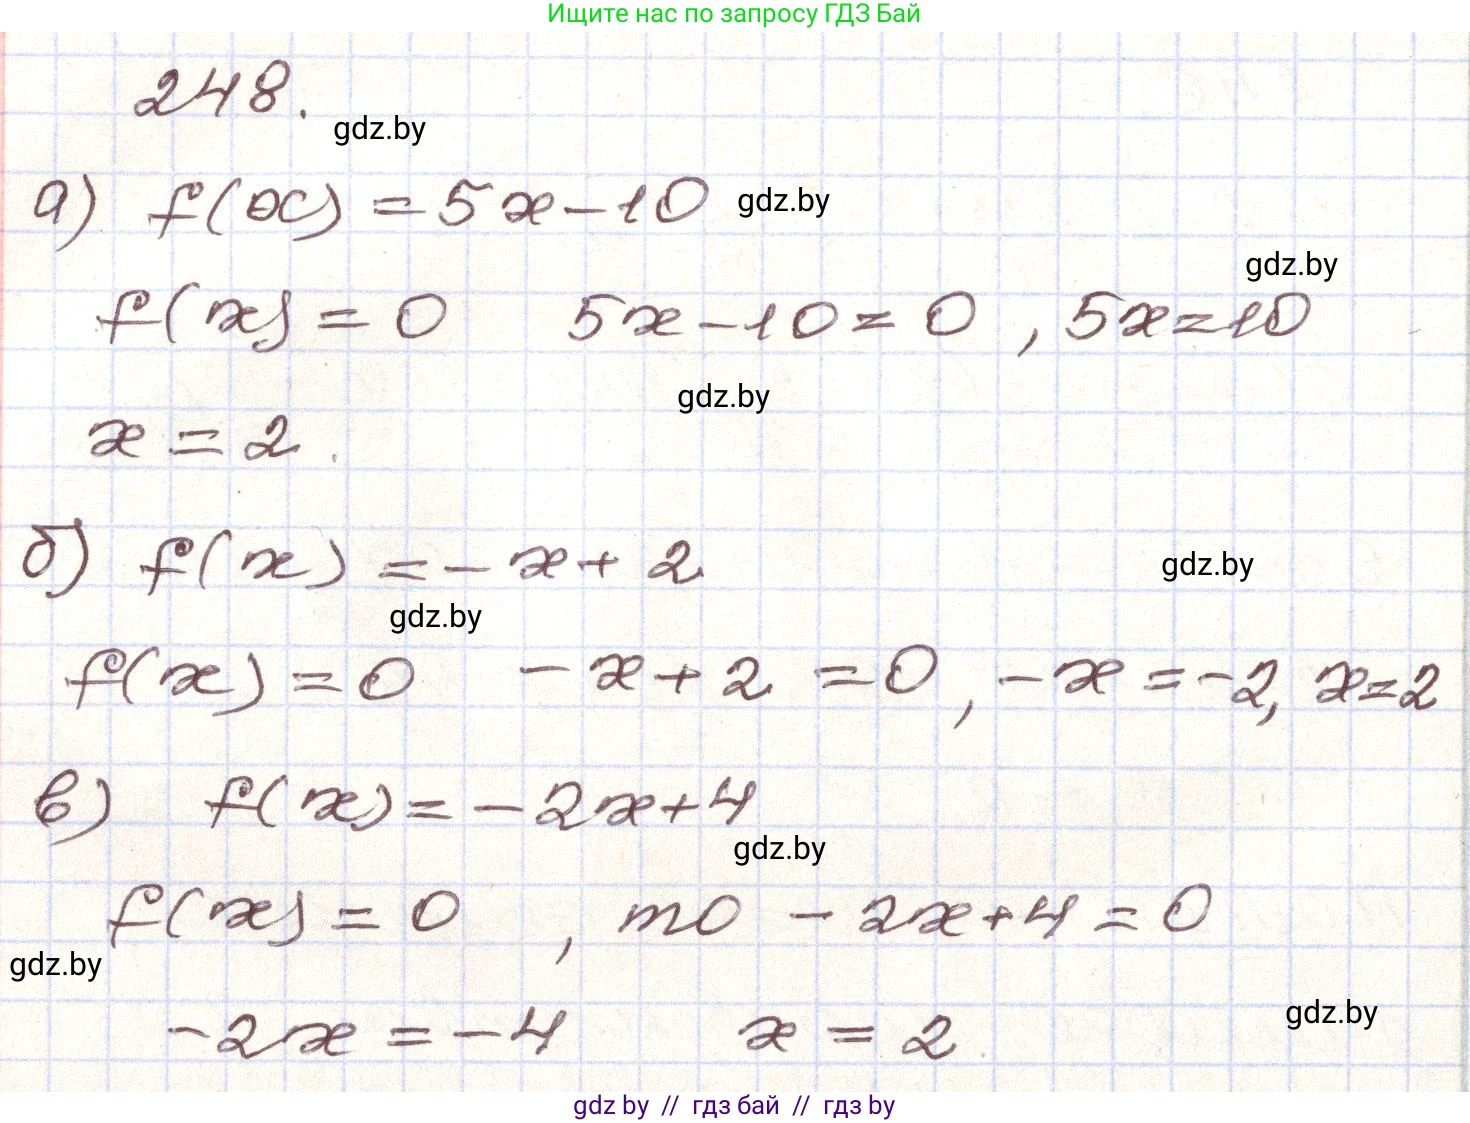 Ищите нас по запросу ГДЗ Бай
248.
gdz.by
а) f(x) = 5x - 10
gdz.by
gdz.by
f(x) = 0 5x - 10 = 0 , 5x = 10
gdz.by
x = 2.
б) f(x) = - x + 2
gdz.by
gdz.by
f(x) = 0 - x + 2 = 0 , - x = - 2, x = 2
в) f(x) = - 2x + 4
gdz.by
f(x) = 0 , то - 2x + 4 = 0
gdz.by
gdz.by
- 2x = - 4 x = 2
gdz by // гдз бай // гдз by